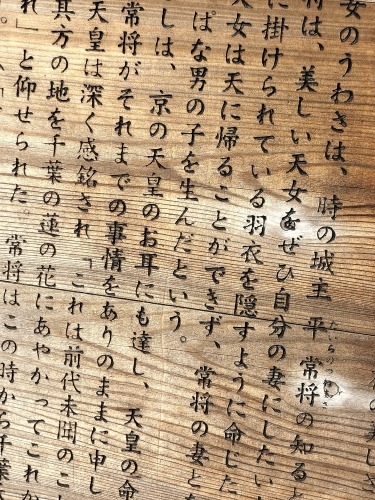 の美しさ
女のうわさは、時の城主 平 常将の知る
将は、美しい天女をぜひ自分の妻にしたい
に掛けられている羽衣を隠すように命じた
天女は天に帰ることができず、 常将の妻とな
ぱな男の子を生んだという。
しは、京の天皇のお耳にも達し、 天皇の命
常将がそれまでの事情をありのままに申し
天皇は深く感銘され「これは前代未聞のこ
其方の地を千葉の蓮の花にあやかってこれか
れ」と仰せられた。 常将はこの時から千葉